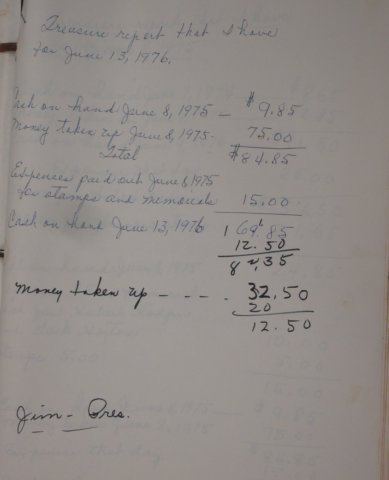 Treasure report that I have
for June 13, 1976.
Cash on hand June 8, 1975 – $9.85
Money taken up June 8, 1975 - 75.00
Total $84.85
Expences paid out June 8, 1975
for stamps and memorials 15.00
Cash on hand June 13, 1976 69.85
12.50
82.35
Money taken up - - - . 32.50
20
12.50
Jim - Pres.